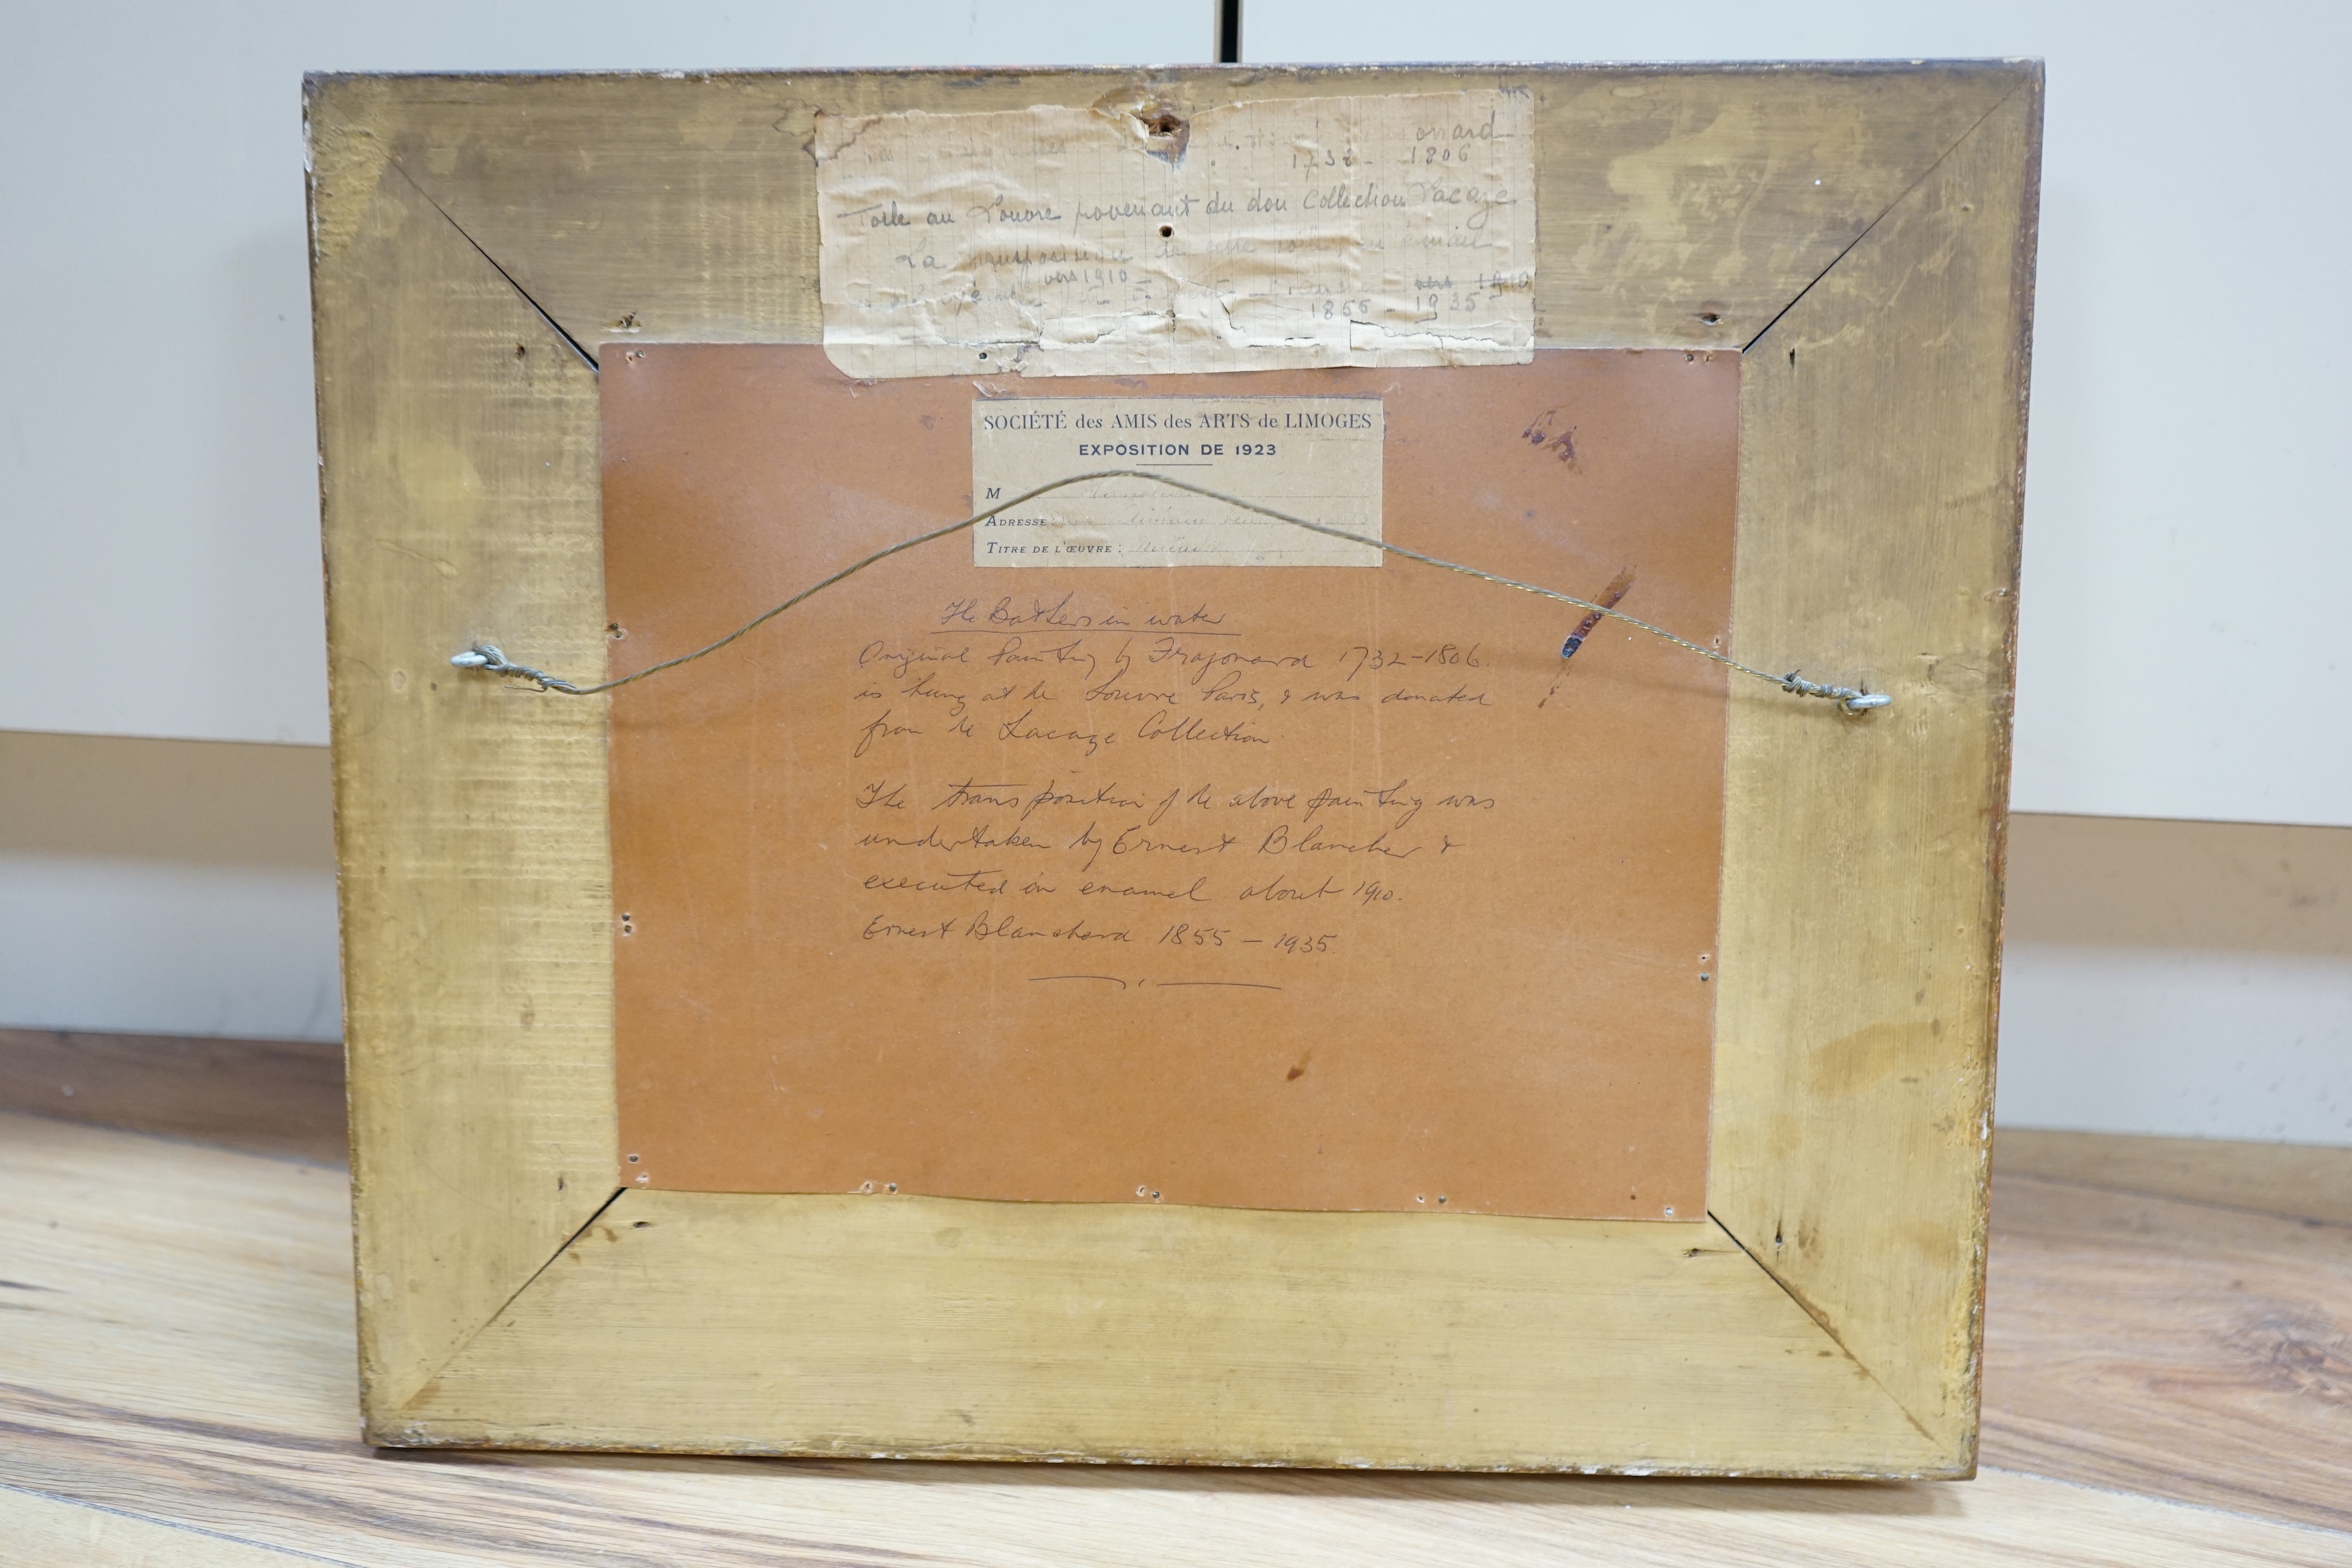 onard
1732 - 1806
Toile au Louvre provenant du don Collection Lacaze
La
vers 1910
vers 1910
1855 - 1935
SOCIÉTÉ des AMIS des ARTS de LIMOGES
EXPOSITION DE 1923
M
ADRESSE
TITRE DE L'ŒUVRE :
The Bathers in water
Original Painting by Fragonard 1732-1806.
is hung at the Louvre Paris, & was donated
from the Lacaze Collection
The transposition of the above painting was
undertaken by Ernest Blancher &
executed in enamel about 1910.
Ernest Blanchard 1855 - 1935.